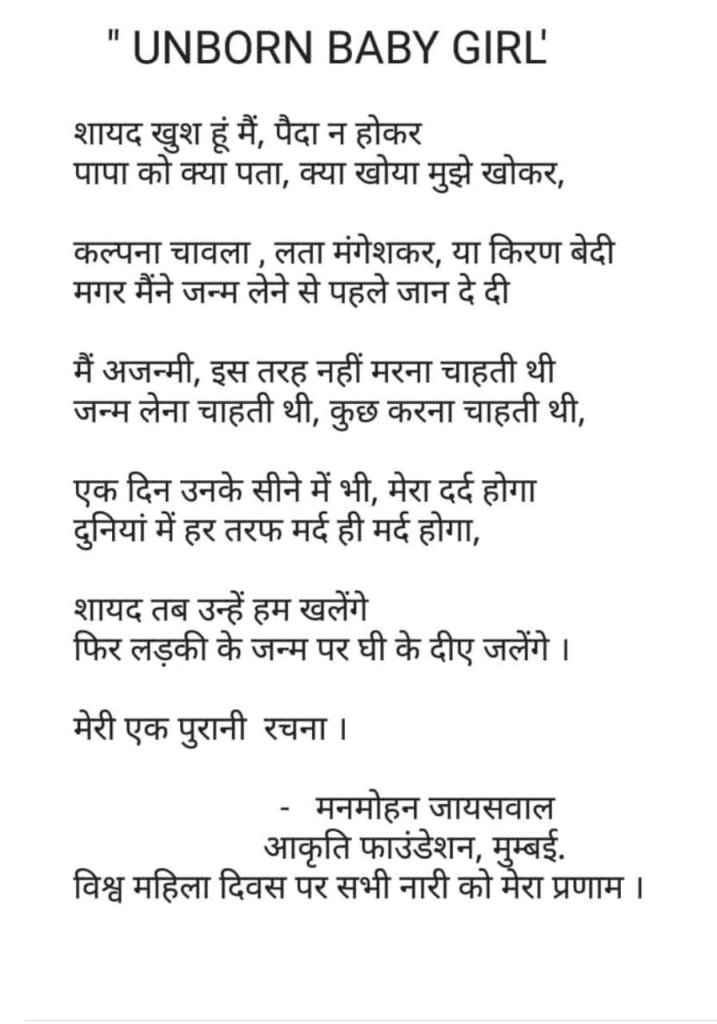 " UNBORN BABY GIRL'
शायद खुश हूं मैं, पैदा न होकर
पापा को क्या पता, क्या खोया मुझे खोकर,
कल्पना चावला , लता मंगेशकर, या किरण बेदी
मगर मैंने जन्म लेने से पहले जान दे दी
मैं अजन्मी, इस तरह नहीं मरना चाहती थी
जन्म लेना चाहती थी, कुछ करना चाहती थी,
एक दिन उनके सीने में भी, मेरा दर्द होगा
दुनियां में हर तरफ मर्द ही मर्द होगा,
शायद तब उन्हें हम खलेंगे
फिर लड़की के जन्म पर घी के दीए जलेंगे ।
मेरी एक पुरानी रचना ।
- मनमोहन जायसवाल
आकृति फाउंडेशन, मुम्बई.
विश्व महिला दिवस पर सभी नारी को मेरा प्रणाम ।